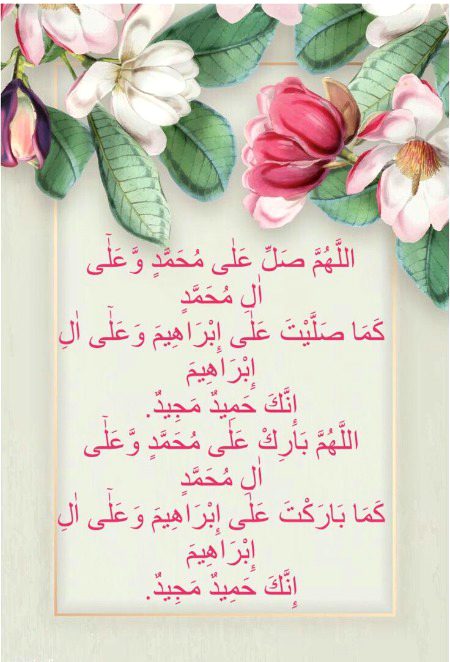 اللَّهُمَّ صَلِّ عَلٰى مُحَمَّدٍ وَّعَلٰٓى
اٰلِ مُحَمَّدٍ
كَمَا صَلَّيْتَ عَلٰى إِبْرَاهِيمَ وَعَلٰٓى اٰلِ
إِبْرَاهِيمَ
إِنَّكَ حَمِيدٌ مَجِيدٌ.
اللَّهُمَّ بَارِكْ عَلٰى مُحَمَّدٍ وَّعَلٰٓى
اٰلِ مُحَمَّدٍ
كَمَا بَارَكْتَ عَلٰى إِبْرَاهِيمَ وَعَلٰٓى اٰلِ
إِبْرَاهِيمَ
إِنَّكَ حَمِيدٌ مَجِيدٌ.